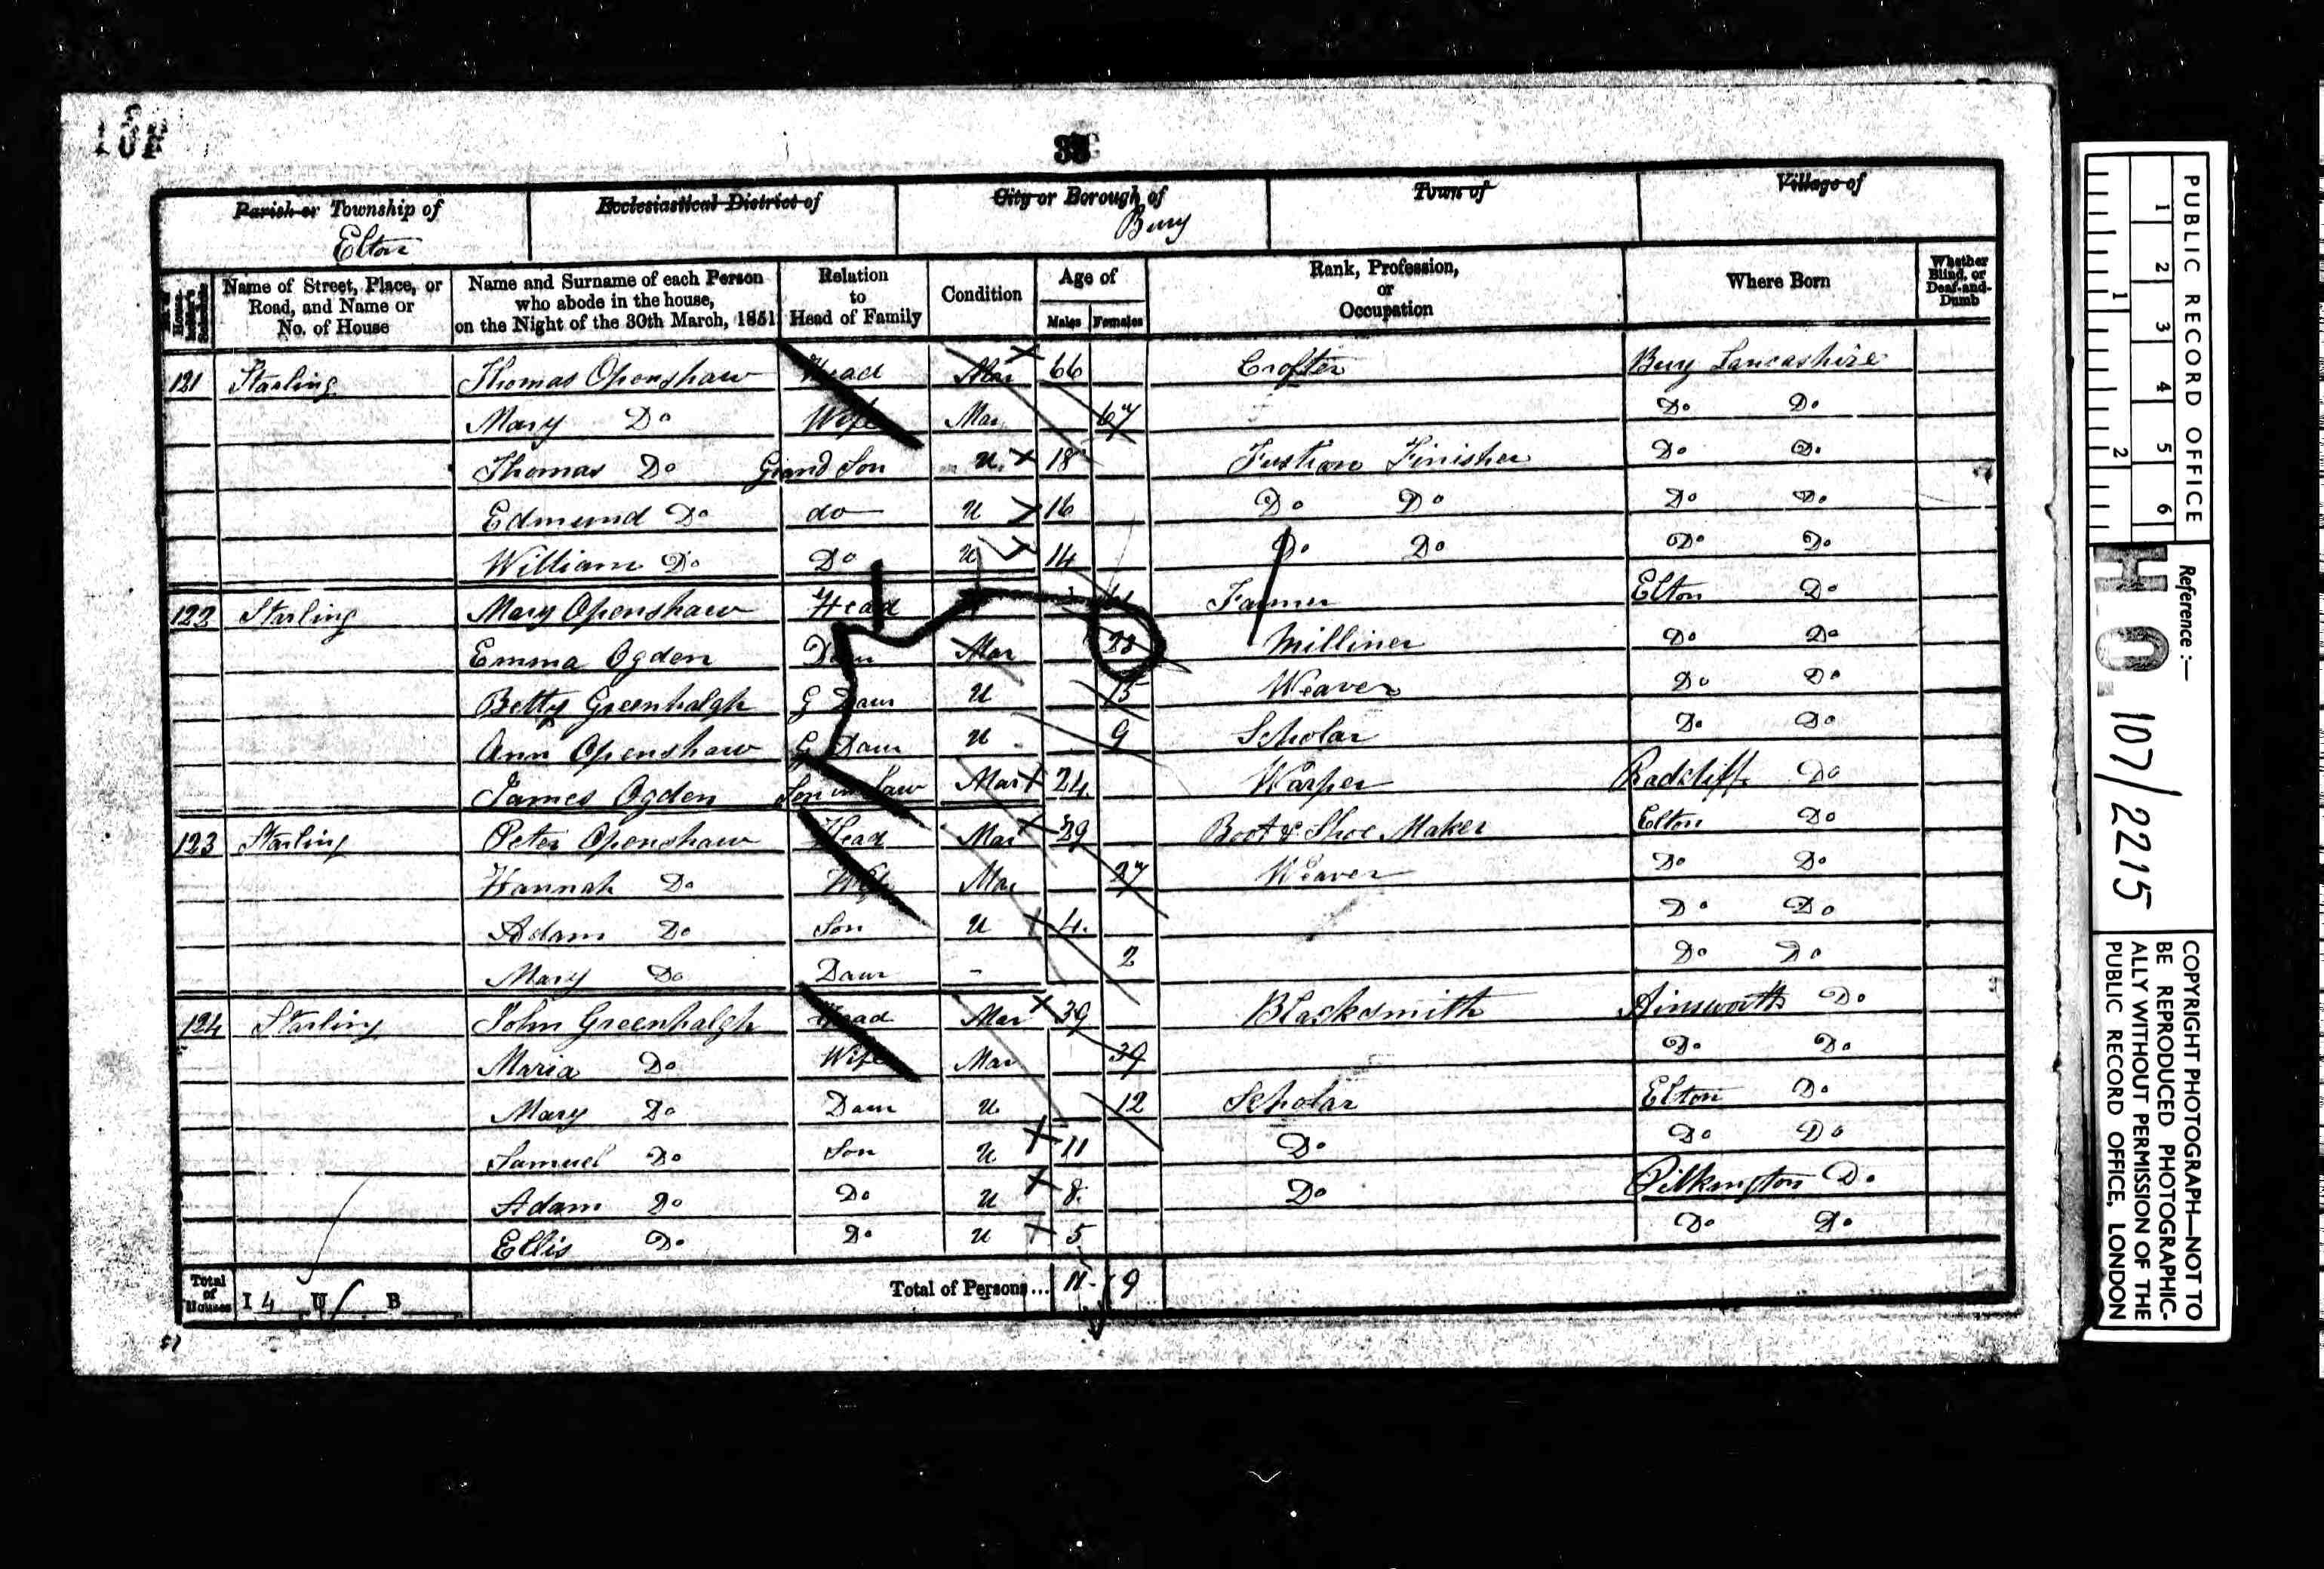 Parish or Township of Ecclesiastical District of City or Borough of Town of Village of
Elton Bury
Name of Street, Place, or Road, and Name or No. of House
Name and Surname of each Person who abode in the house, on the Night of the 30th March, 1851
Relation to Head of Family
Condition
Age of
Males Females
Rank, Profession, or Occupation
Where Born
Whether Blind, or Deaf-and-Dumb
121 Starling Thomas Openshaw Head Mar 66 Crofter Bury Lancashire
Mary Do Wife Mar 67 Do Do
Thomas Do Grand Son U 18 Fustian Finisher Do Do
Edmund Do do U 16 Do Do Do Do
William Do Do U 14 Do Do Do Do
122 Starling Mary Openshaw Head Farmer Elton Do
Emma Ogden Daur Mar 28 Milliner Do Do
Betty Greenhalgh G Daur U 15 Weaver Do Do
Ann Openshaw G Daur U 9 Scholar Do Do
James Ogden Son in Law Mar 24 Warper Radcliff Do
123 Starling Peter Openshaw Head Mar 29 Boot & Shoe Maker Elton Do
Hannah Do Wife Mar 27 Weaver Do Do
Adam Do Son U 4 Do Do
Mary Do Daur - 2 Do Do
124 Starling John Greenhalgh Head Mar 39 Blacksmith Ainsworth Do
Maria Do Wife Mar 39 Do Do
Mary Do Daur U 12 Scholar Elton Do
Samuel Do Son U 11 Do Do Do
Adam Do Do U 8 Do Pilkington Do
Ellis Do Do U 5 Do Do
Total of Houses I 4 U B Total of Persons... 11 9
PUBLIC RECORD OFFICE
1 2 3 4 5 6
1 2
Reference:—
H.O. 107/2215
COPYRIGHT PHOTOGRAPH—NOT TO
BE REPRODUCED PHOTOGRAPHIC-
ALLY WITHOUT PERMISSION OF THE
PUBLIC RECORD OFFICE, LONDON